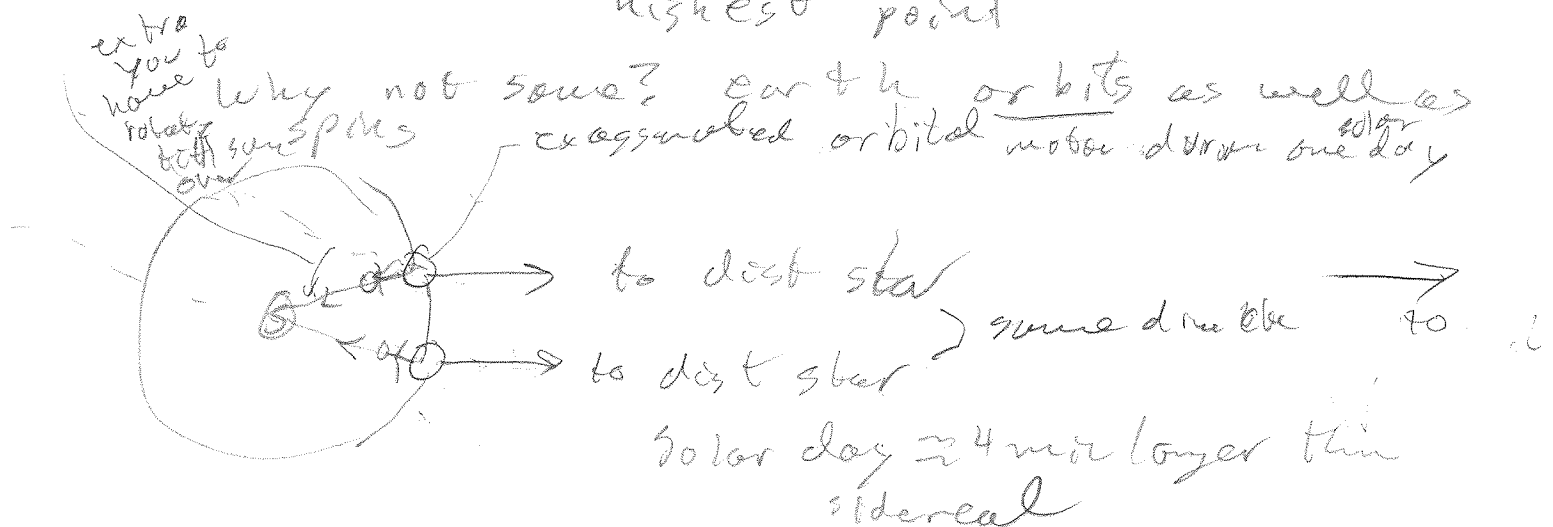 highest point
extra
you to
have
rotate
till sun
over
Why not same? earth orbits as well as
spins
exaggerated orbital motion during one solar day
S
to dist star
to dist star
same direction
to
Solar day ≈ 4 min longer than
sidereal